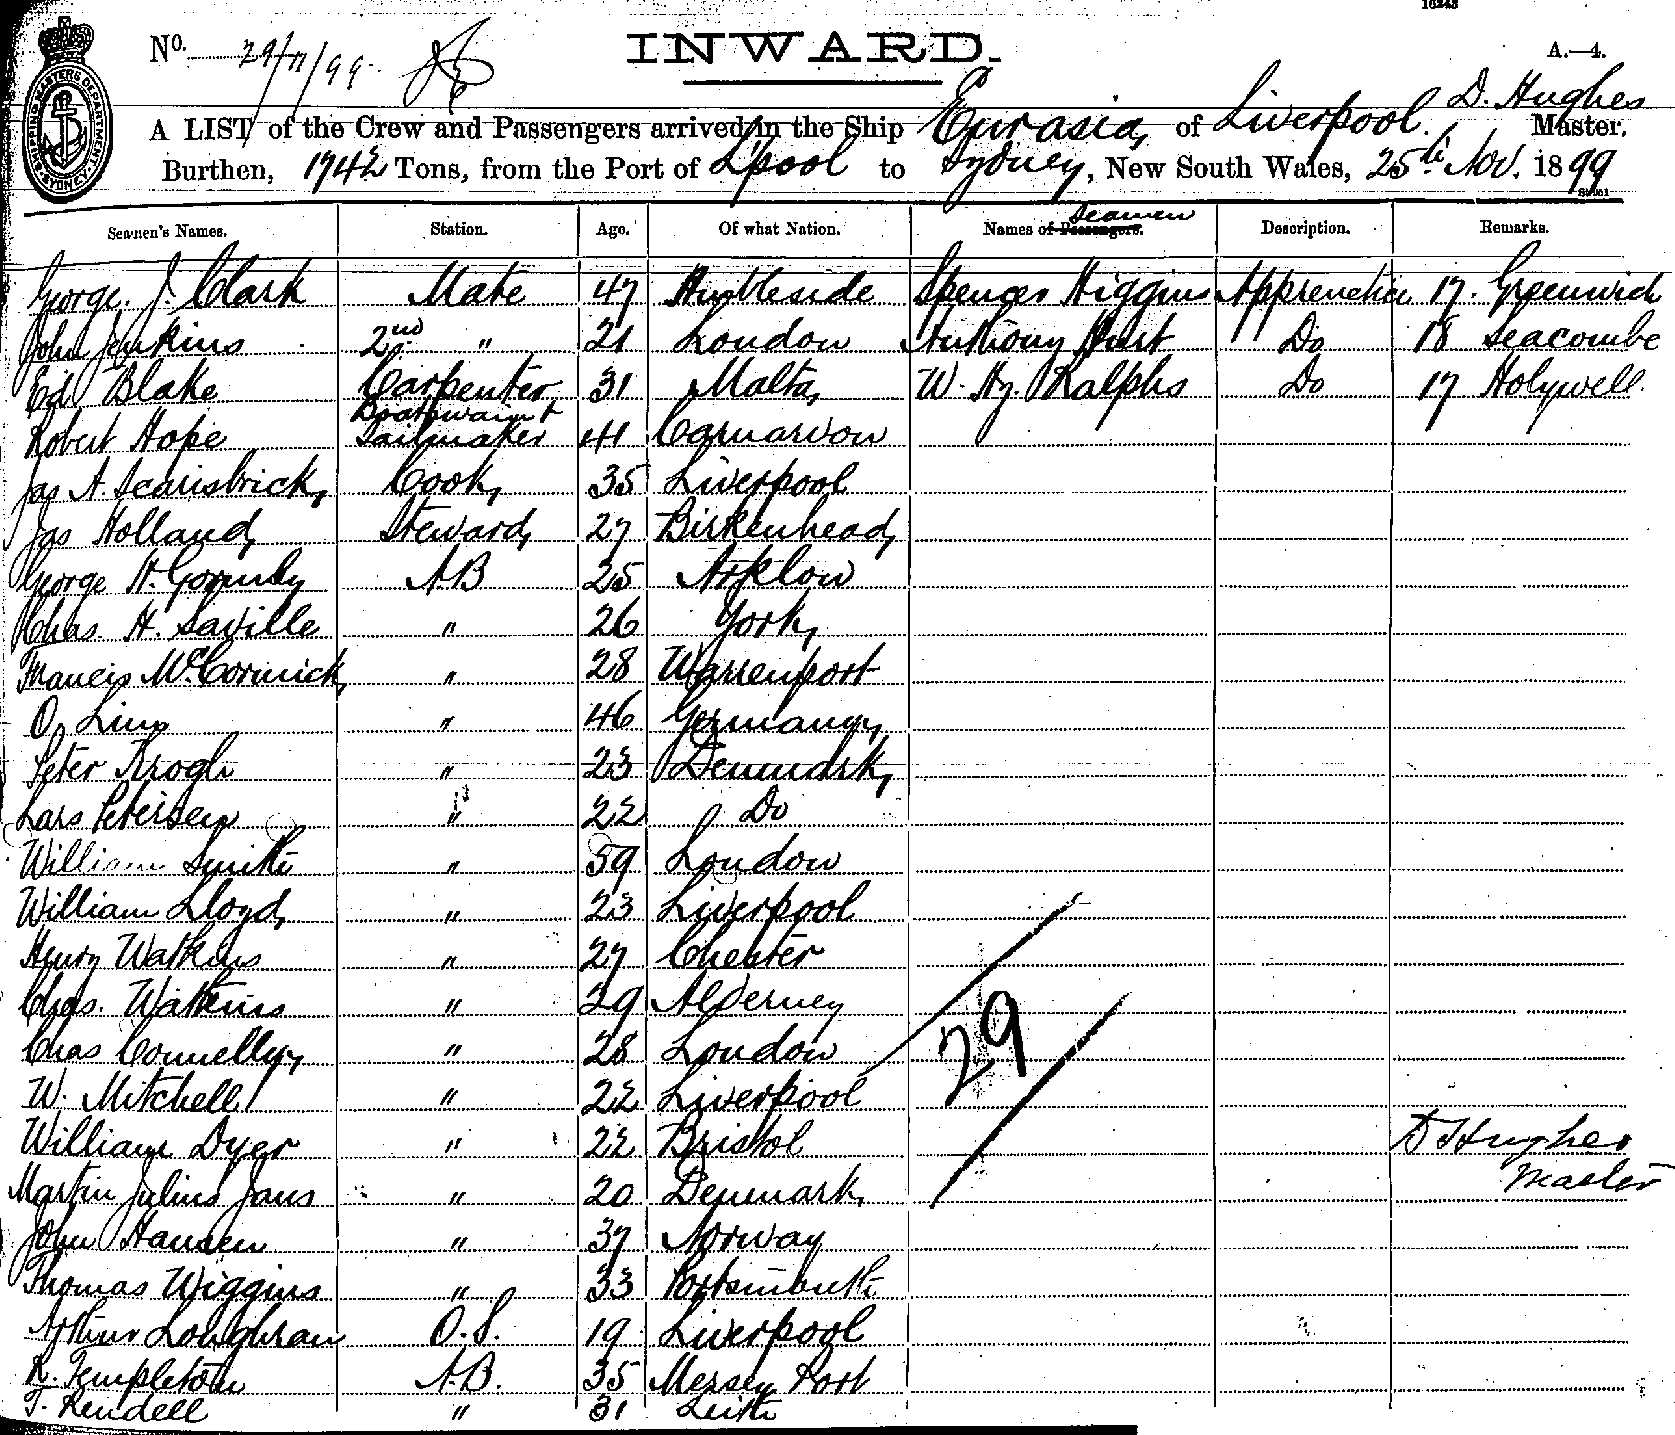 16243
No. 29/11/99.
INWARD.
A.—4.
SHIPPING MASTERS DEPARTMENT SYDNEY
D. Hughes
A LIST of the Crew and Passengers arrived in the Ship Eurasia, of Liverpool. Master.
Burthen, 1742 Tons, from the Port of L'pool to Sydney, New South Wales, 25th Nov. 1899
Seamen
Seamen's Names. Station. Age. Of what Nation. Names of Passengers. Description. Remarks.
George. J. Clark Mate 47 Ambleside Spencer Higgins Apprentice 17. Greenwich
John Jenkins 2nd " 21 London Anthony Hurst Do 18 Seacombe
Ed Blake Carpenter, 31 Malta, W. Hy. Ralphs Do 17 Holywell.
Robert Hope Boatswain & Sailmaker 41 Carnarvon
Jas A. Scarisbrick, Cook, 35 Liverpool
Jas Holland, Steward, 27 Birkenhead,
George H. Gormby AB 25 Arklow
Chas. H. Saville " 26 York,
Francis McCormick, " 28 Warrenport
O, Ling " 46 Germany,
Peter Krogh " 23 Denmark,
Lars Petersen " 22 Do
William Smith " 59 London
William Lloyd, " 23 Liverpool
Henry Watkins " 27 Chester
Chas. Watkins " 29 Alderney
Chas Connelly, " 28 London
29
W. Mitchell " 22 Liverpool
William Dyer " 22 Bristol D Hughes
Martin Julius Jans " 20 Denmark, Master
John Hansen " 37 Norway
Thomas Wiggins " 33 Portsmouth
Arthur Loughran O.S. 19 Liverpool
R. Templeton A.B. 35 Mersey Port
T. Rendell " 31 Leith